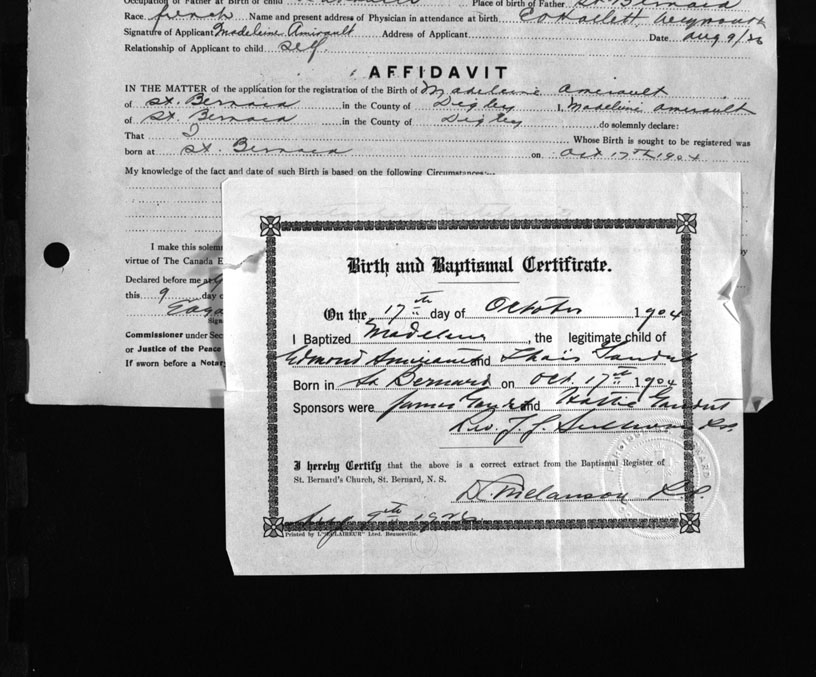 Occupation of Father at Birth of child Place of birth of Father St. Bernard
Race french Name and present address of Physician in attendance at birth Hallett, Weymouth
Signature of Applicant Madeleine Amirault Address of Applicant Date Aug 9/26
Relationship of Applicant to child self
AFFIDAVIT
IN THE MATTER of the application for the registration of the Birth of Madeleine Amerault
of St. Bernard in the County of Digby I, Madeline Amerault
of St. Bernard in the County of Digby do solemnly declare:
That I Whose Birth is sought to be registered was
born at St. Bernard on Oct 17th 1904
My knowledge of the fact and date of such Birth is based on the following Circumstances:
I make this solemn
virtue of The Canada E
Declared before me at
this 9 day o
Commissioner under Sec
or Justice of the Peace
If sworn before a Notar
Birth and Baptismal Certificate.
On the 17th day of October 1904
I Baptized Madeleine, the legitimate child of
Edmond and Thais Gaudet
Born in St Bernard on Oct. 17th 1904
Sponsors were James Gaudet and Hattie Gaudet
Rev. J. J. Sullivan P.P.
I hereby Certify that the above is a correct extract from the Baptismal Register of
St. Bernard's Church, St. Bernard, N. S.
D. Melanson P.P.
Aug 9th 1926
Printed by L'"ECLAIREUR" Ltd. Beauceville.